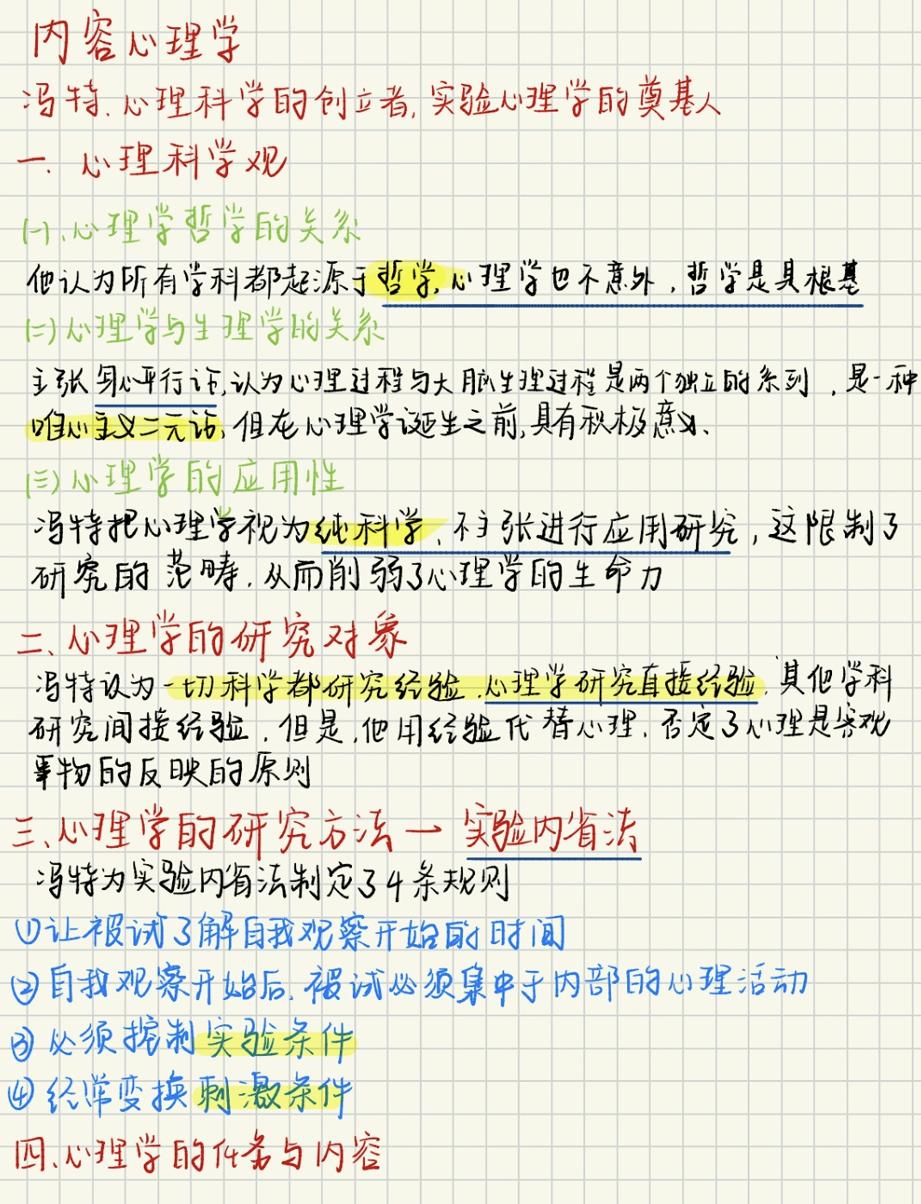 内容心理学
冯特、心理科学的创立者,实验心理学的奠基人
一、心理科学观
(一)、心理学哲学的关系
他认为所有学科都起源于哲学,心理学也不意外,哲学是其根基
(二)心理学与生理学的关系
主张身心平行论,认为心理过程与大脑生理过程是两个独立的系列,是一种
唯心主义二元论,但在心理学诞生之前,具有积极意义、
(三)心理学的应用性
冯特把心理学视为纯科学、不主张进行应用研究,这限制了
研究的范畴,从而削弱了心理学的生命力
二、心理学的研究对象
冯特认为一切科学都研究经验,心理学研究直接经验,其他学科
研究间接经验,但是,他用经验代替心理,否定了心理是客观
事物的反映的原则
三、心理学的研究方法一实验内省法
冯特为实验内省法制定了4条规则
①让被试了解自我观察开始的时间
②自我观察开始后,被试必须集中于内部的心理活动
③必须控制实验条件
④经常变换刺激条件
四、心理学的任务与内容